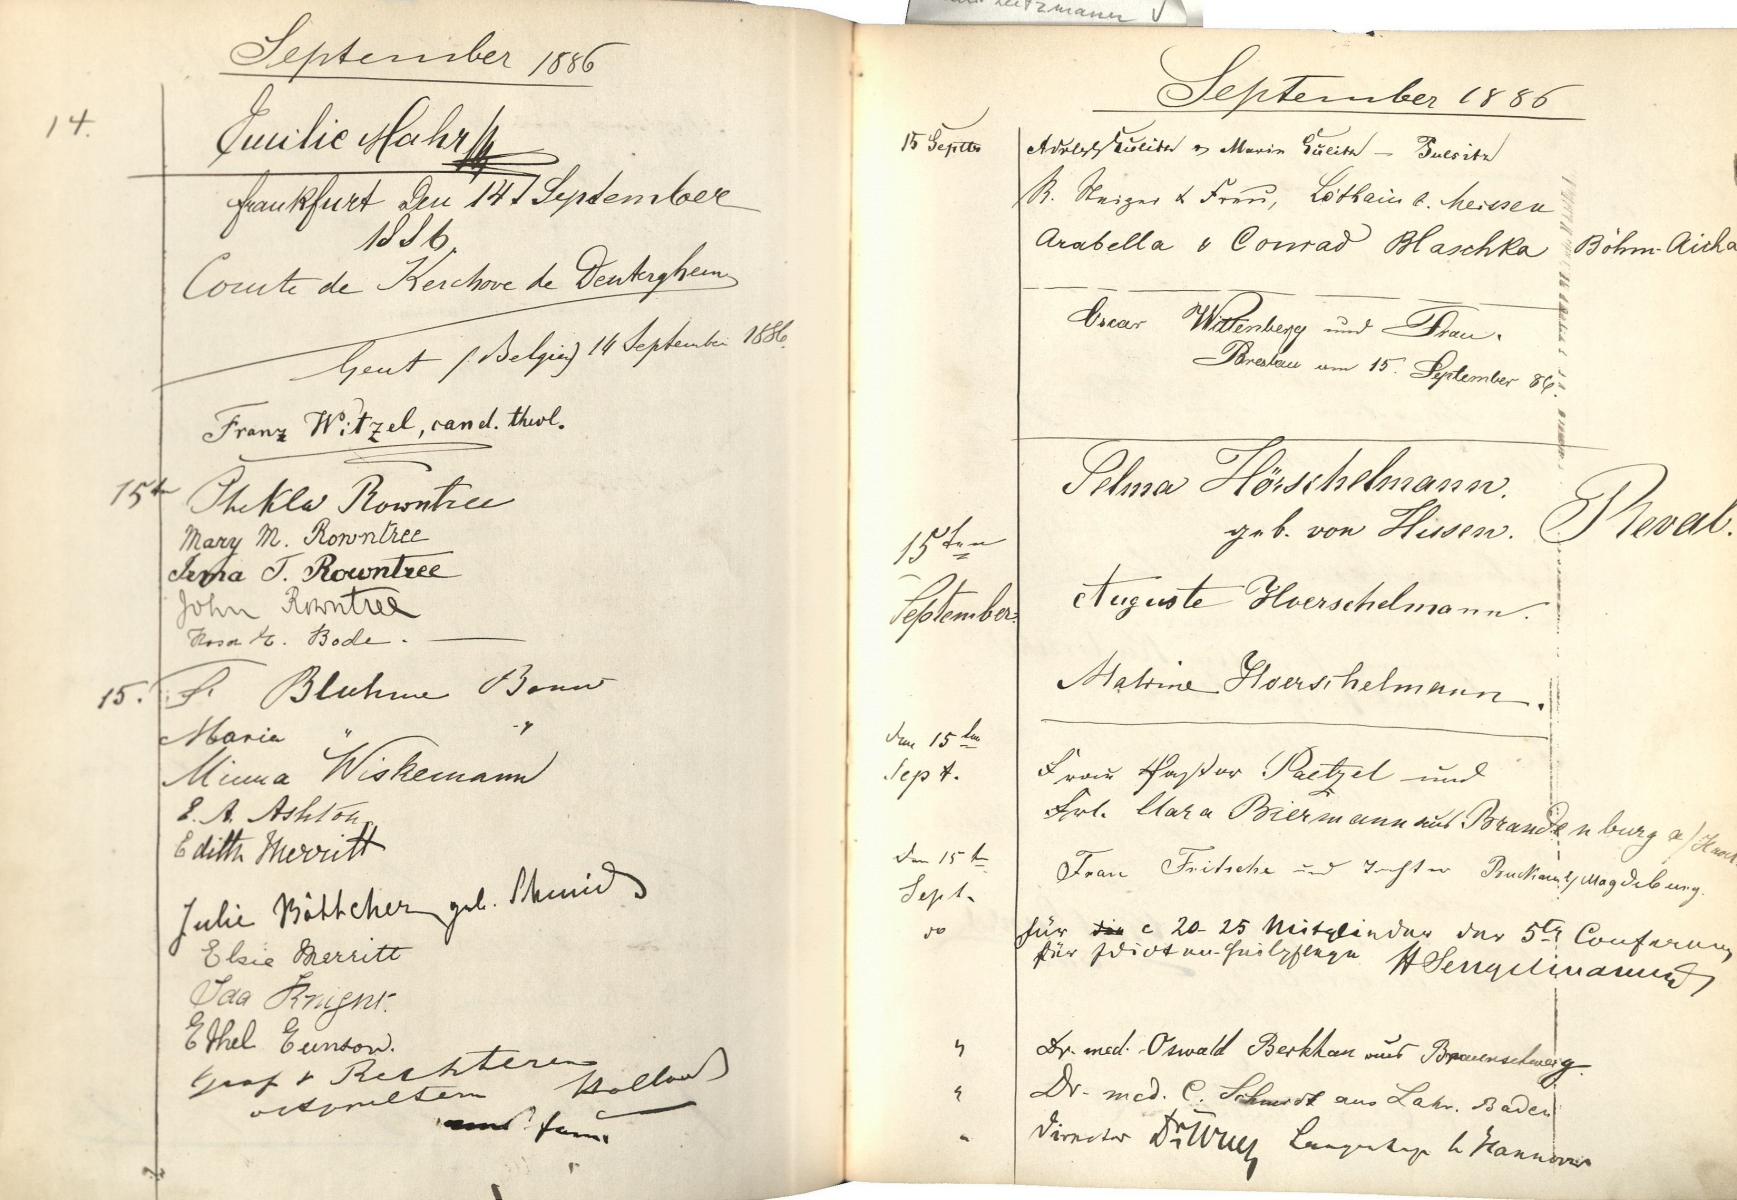 September 1886
14.
Emilie Mahr
Frankfurt den 14 September
1886.
Comte de Kerchove de Denterghem
Gent (Belgien) 14 September 1886.
Franz Witzel, cand. theol.
15t Thekla Rowntree
Mary M. Rowntree
Irma T. Rowntree
John Rowntree
Rosa E. Bode.
15. F. Bluhme Bonn
Maria " "
Minna Wiskemann
E. A. Ashton
Edith Merritt
Julie Böttcher geb. Schmid
Elsie Merritt
Ida Knight.
Ethel Eunson.
Graf v Rechteren
Holland
und fam.
Leitzmann
September 1886
15 Septb
Adolf & Marie
R. Steiger & Frau, Löthain b. Meissen
Arabella & Conrad Blaschka Böhm-Aicha
Oscar Wittenberg und Frau.
Breslau am 15. September 86.
Selma Hörschelmann.
geb. von Husen. Reval.
15ten
September
Auguste Hoerschelmann.
Hoerschelmann.
den 15ten
Sept.
Frau Pastor Paetzel und
Frl. Clara Biermann aus Brandenburg a/Havel
den 15t
Sept.
Frau Fritsche und Tochter Buckau b/Magdeburg.
do
für die c 20-25 Mitglieder der 5ter Conferenz
für Idioten-Heilpflege H Sengelmann
" Dr. med. Oswald Berkhan aus Braunschweig.
" Dr. med. C. Schmidt aus Lahr. Baden
" Director Dr. Wulff Langenhagen b Hannover